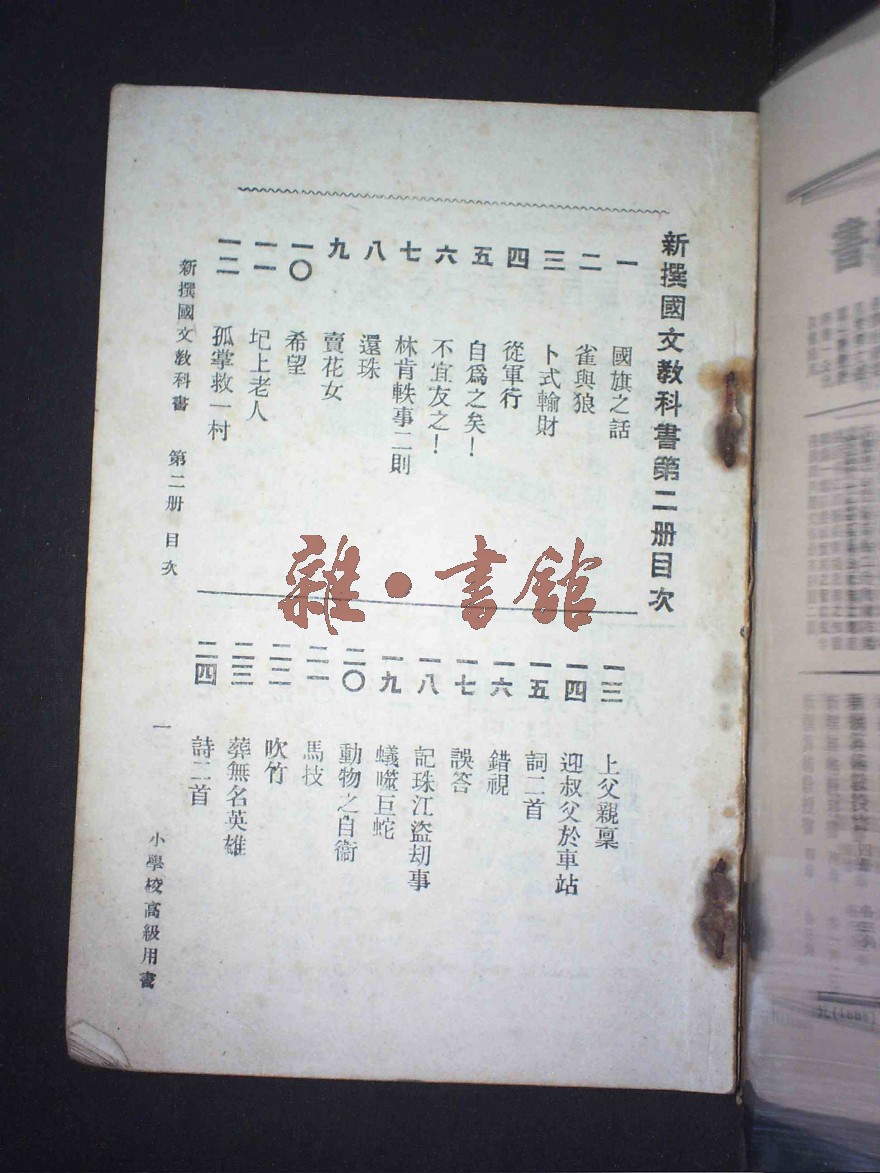 新撰國文敎科書第二册目次
一 國旗之話
二 雀與狼
三 卜式輸財
四 從軍行
五 自爲之矣！
六 不宜友之！
七 林肯軼事二則
八 還珠
九 賣花女
一〇 希望
一一 圯上老人
一二 孤掌救一村
一三 上父親稟
一四 迎叔父於車站
一五 詞二首
一六 錯視
一七 誤答
一八 記珠江盜刧事
一九 蟻噬巨蛇
二〇 動物之自衞
二一 馬技
二二 吹竹
二三 葬無名英雄
二四 詩二首
新撰國文敎科書 第二册 目次 一 小學校高級用書
雜·書館
書